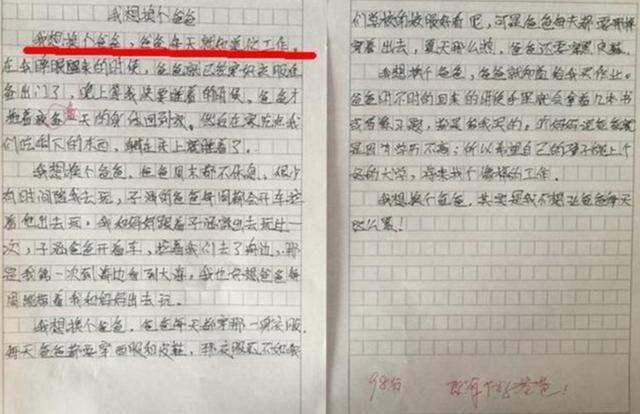 我想换个爸爸
我想换个爸爸，爸爸每天就知道工作。
在我睡眼醒来的时候，爸爸就已经穿好衣服准
备出门了，晚上等我快要睡着的时候，爸爸才
拖着疲惫天的身体回到家。然后在家里吃点我
们吃剩下的东西，躺在床上就睡着了。
我想换个爸爸，爸爸周末都不休息，很少
有时间陪我去玩，子涵的爸爸每周都会开车拉
着他出去玩，我和妈妈跟着子涵他出去玩过一
次，子涵爸爸开着车，拉着我们去了海边，那
是我第一次到海边看到大海，我也好想爸爸每
周能带着我和妈妈出去玩。
我想换个爸爸，爸爸每天都穿那一身衣服，
每天爸爸都要穿西服和皮鞋，那衣服还不如我
们学校的校服好看呢，可是爸爸每天都要那样
穿着出去，夏天那么热，爸爸还要穿
我想换个爸爸，爸爸就知道给我买作业。
爸爸时不时的回来的时候手里就会拿着几本书
或者练习题，都是给我买的。听妈妈说爸爸就
是因为学历不高，所以希望自己的孩子能上个
好的大学，将来找个像样的工作。
我想换个爸爸，其实是我不想让爸爸每天
这么累！
98分 爸爸！